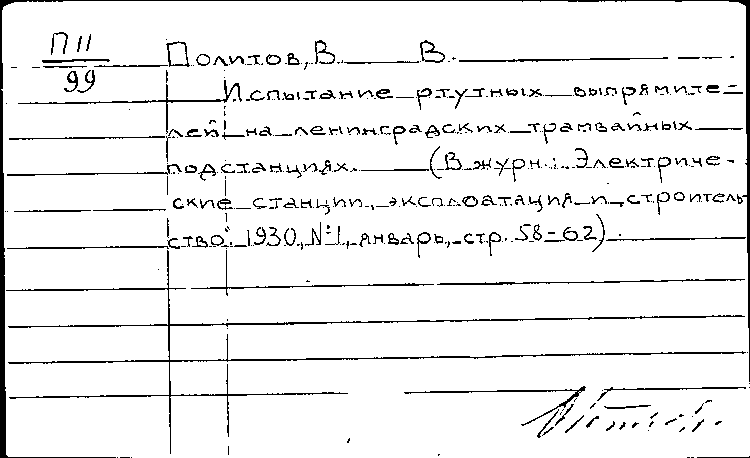 П 11
99
Политов, В. В.
Испытание ртутных выпрямите-
лей на ленинградских трамвайных
подстанциях. (В журн.: Электриче-
ские станции, эксплоатация и строитель
ство. 1930, №1, январь, стр. 58-62).